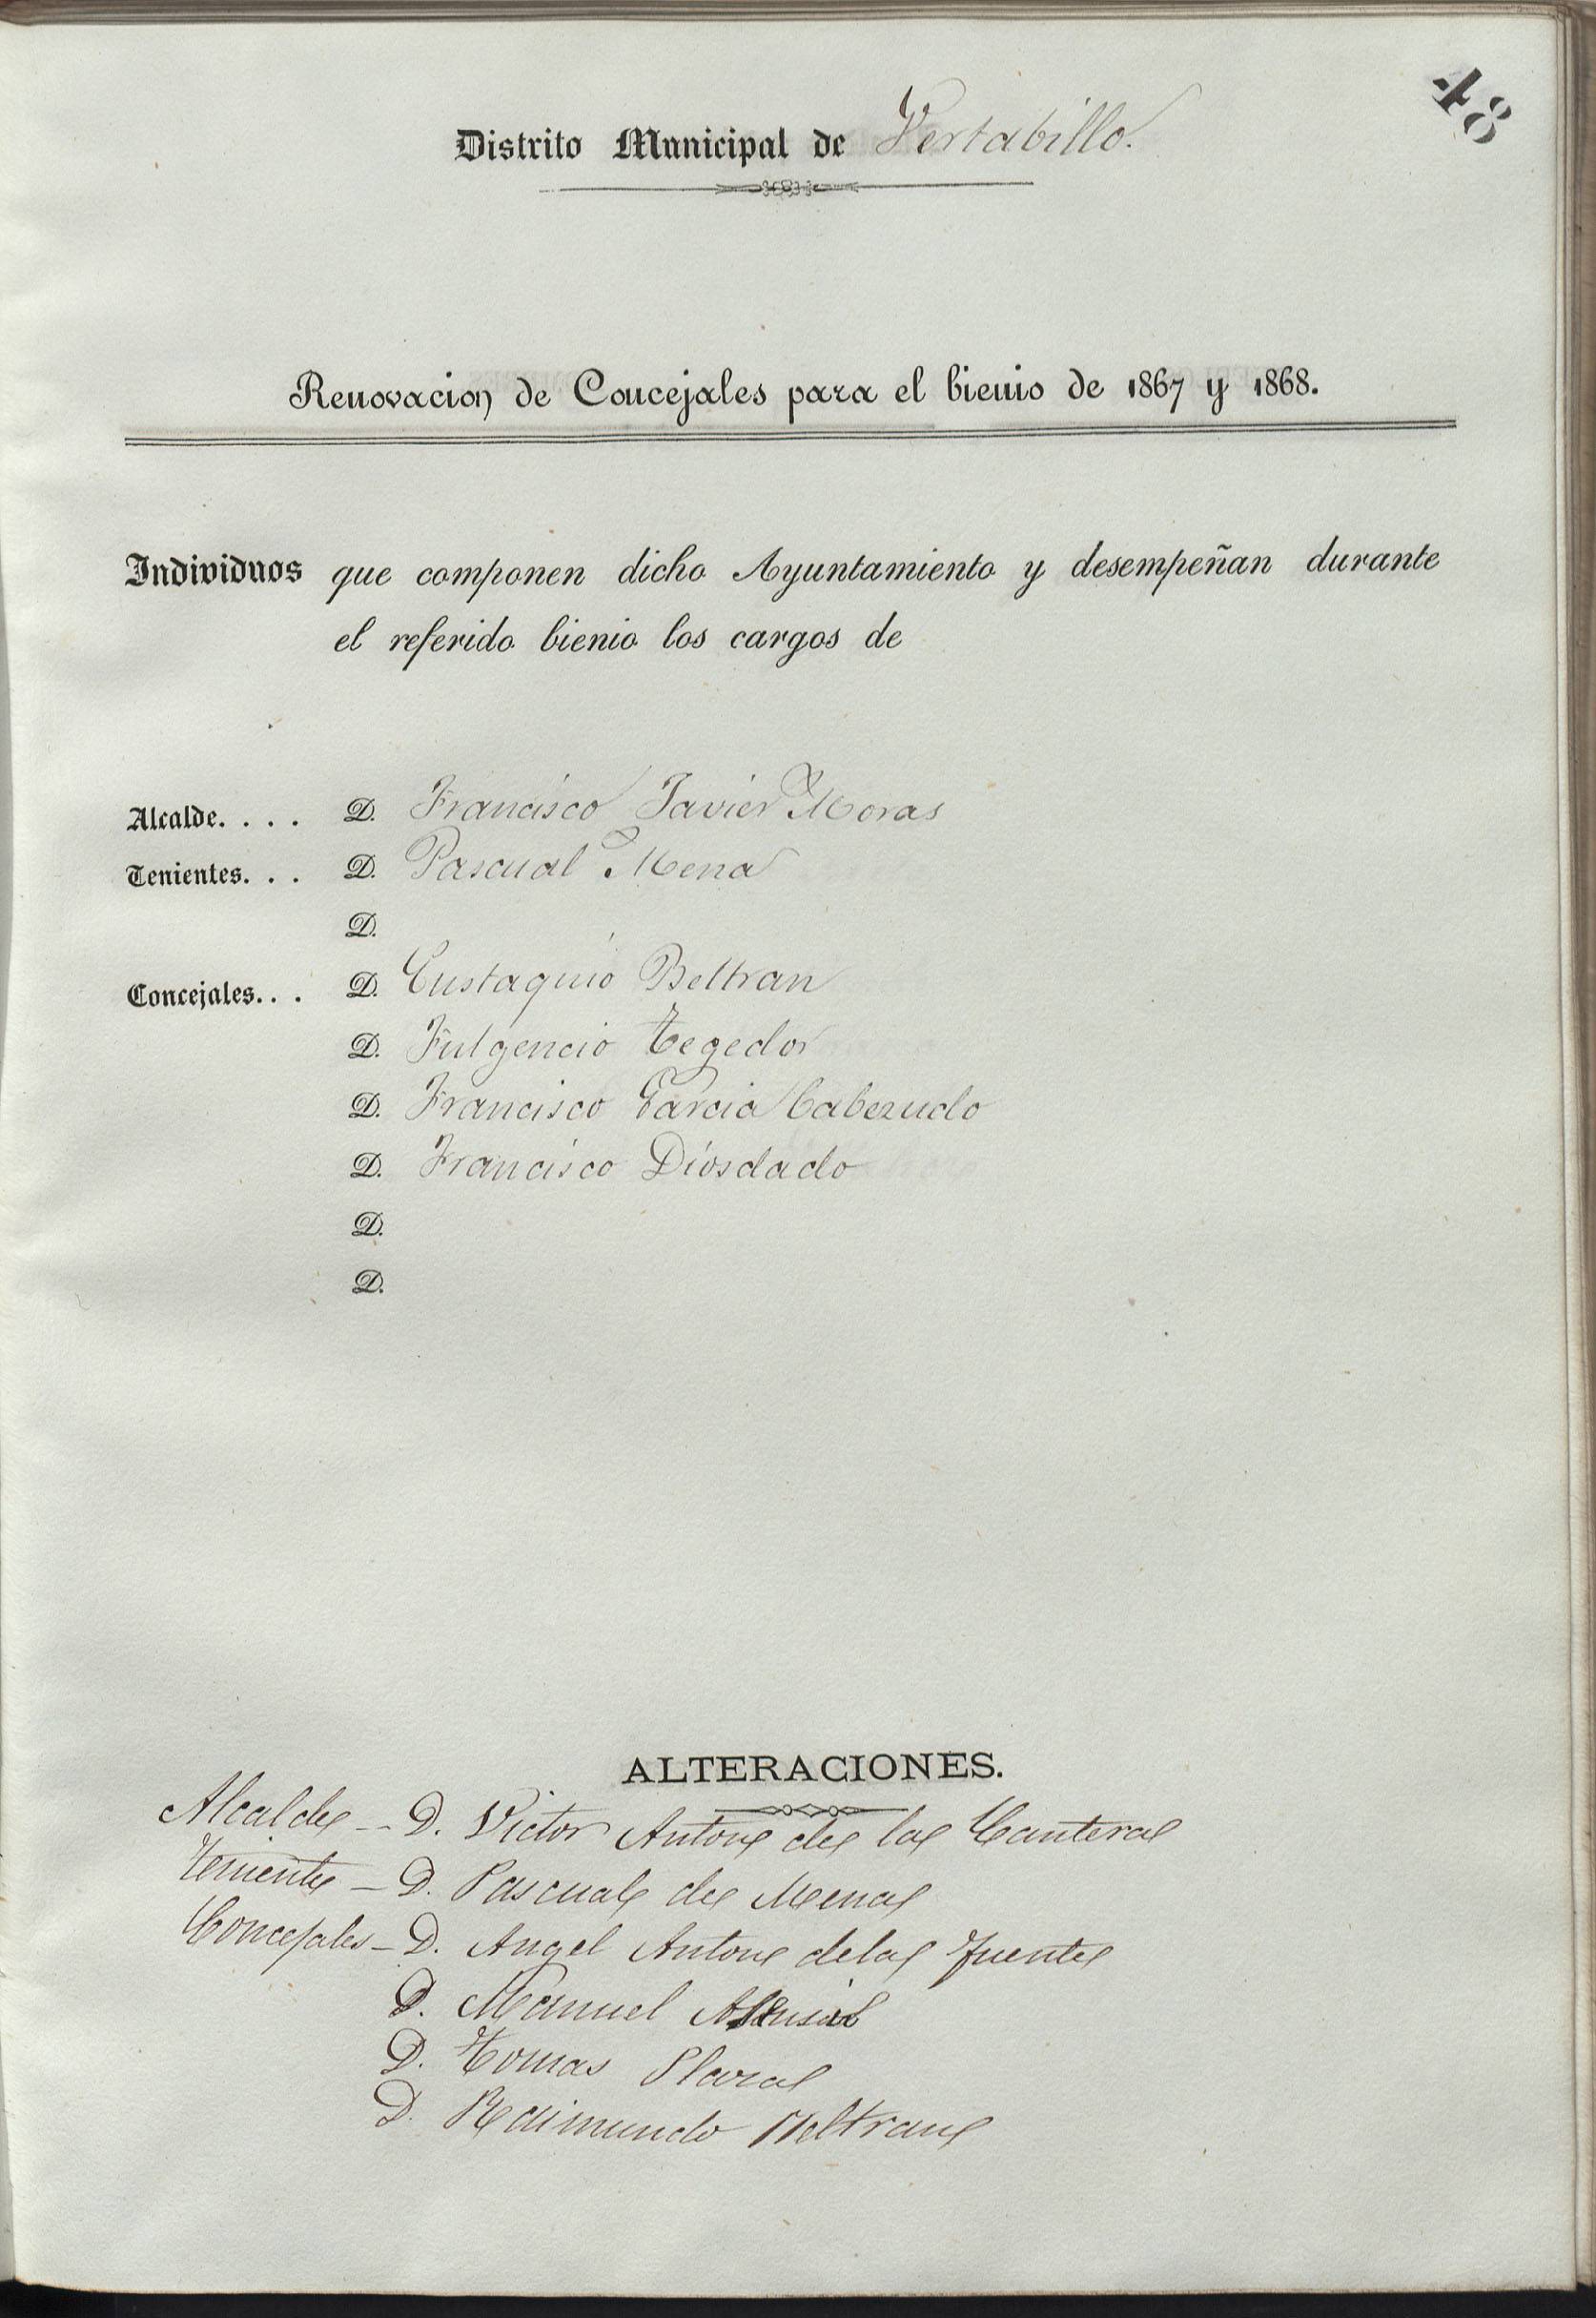 48
Distrito Municipal de Vertabillo.
Renovacion de Concejales para el bienio de 1867 y 1868.
Individuos que componen dicho Ayuntamiento y desempeñan durante
el referido bienio los cargos de
Alcalde. . . . D. Francisco Javier Moras
Tenientes. . . D. Pascual Mena
D.
Concejales. . . D. Eustaquio Beltran
D. Fulgencio Tegedor
D. Francisco Garcia Cabezudo
D. Francisco Diosdado
D.
D.
ALTERACIONES.
Alcalde - D. Victor Anton de la Cantera
Teniente - D. Pascual de Mena
Concejales - D. Angel Anton dela Fuente
D. Manuel Asensio
D. Tomas Plaza
D. Raimundo Beltran